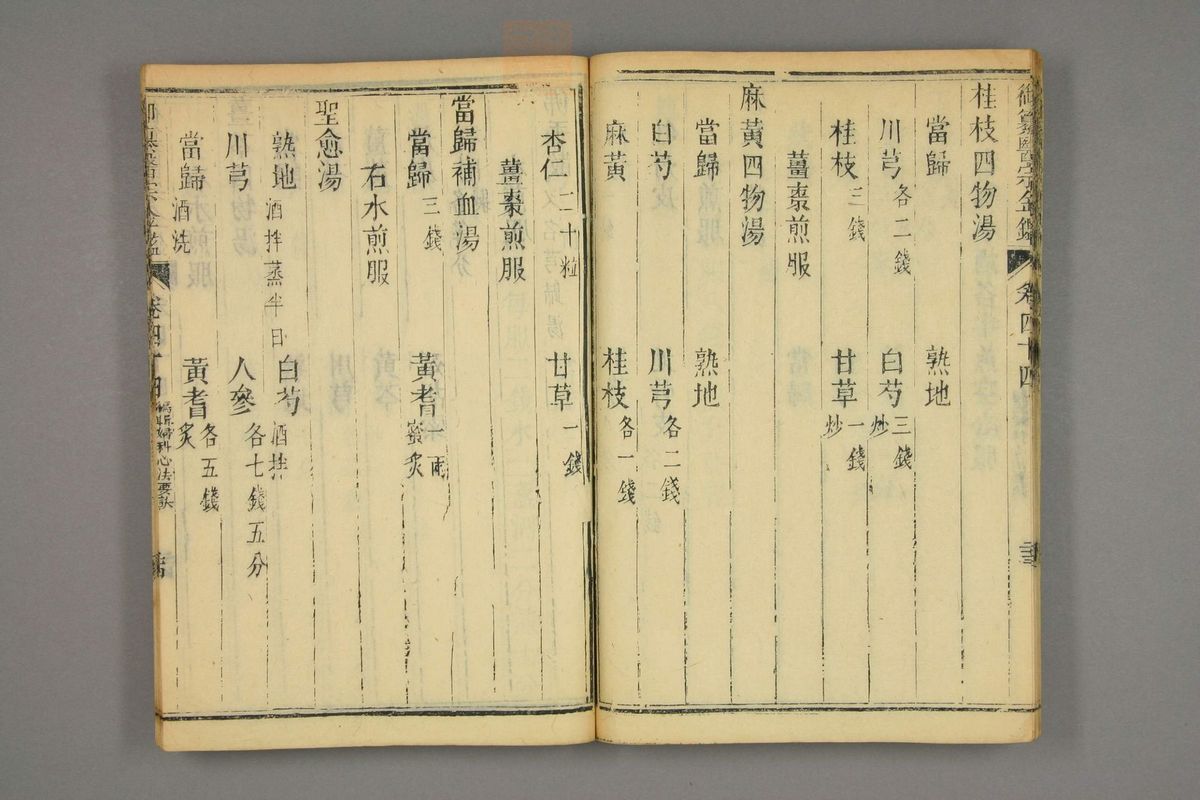 御纂醫宗金鑑 卷四十四
桂枝四物湯
當歸 熟地
川芎各二錢 白芍三錢炒
桂枝三錢 甘草一錢炒
薑棗煎服
麻黃四物湯
當歸 熟地
白芍 川芎各二錢
麻黃 桂枝各一錢
杏仁二十粒 甘草一錢
薑棗煎服
當歸補血湯
當歸三錢 黃耆一兩蜜炙
右水煎服
聖愈湯
熟地酒拌蒸半日 白芍酒拌
川芎 人參各七錢五分
當歸酒洗 黃耆炙各五錢
御纂醫宗金鑑 卷四十四 婦科心法要訣